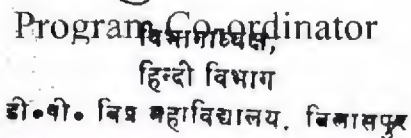 Program Co-ordinator
विभागाध्यक्ष,
हिन्दी विभाग
डी०पी० विप्र महाविद्यालय, बिलासपुर